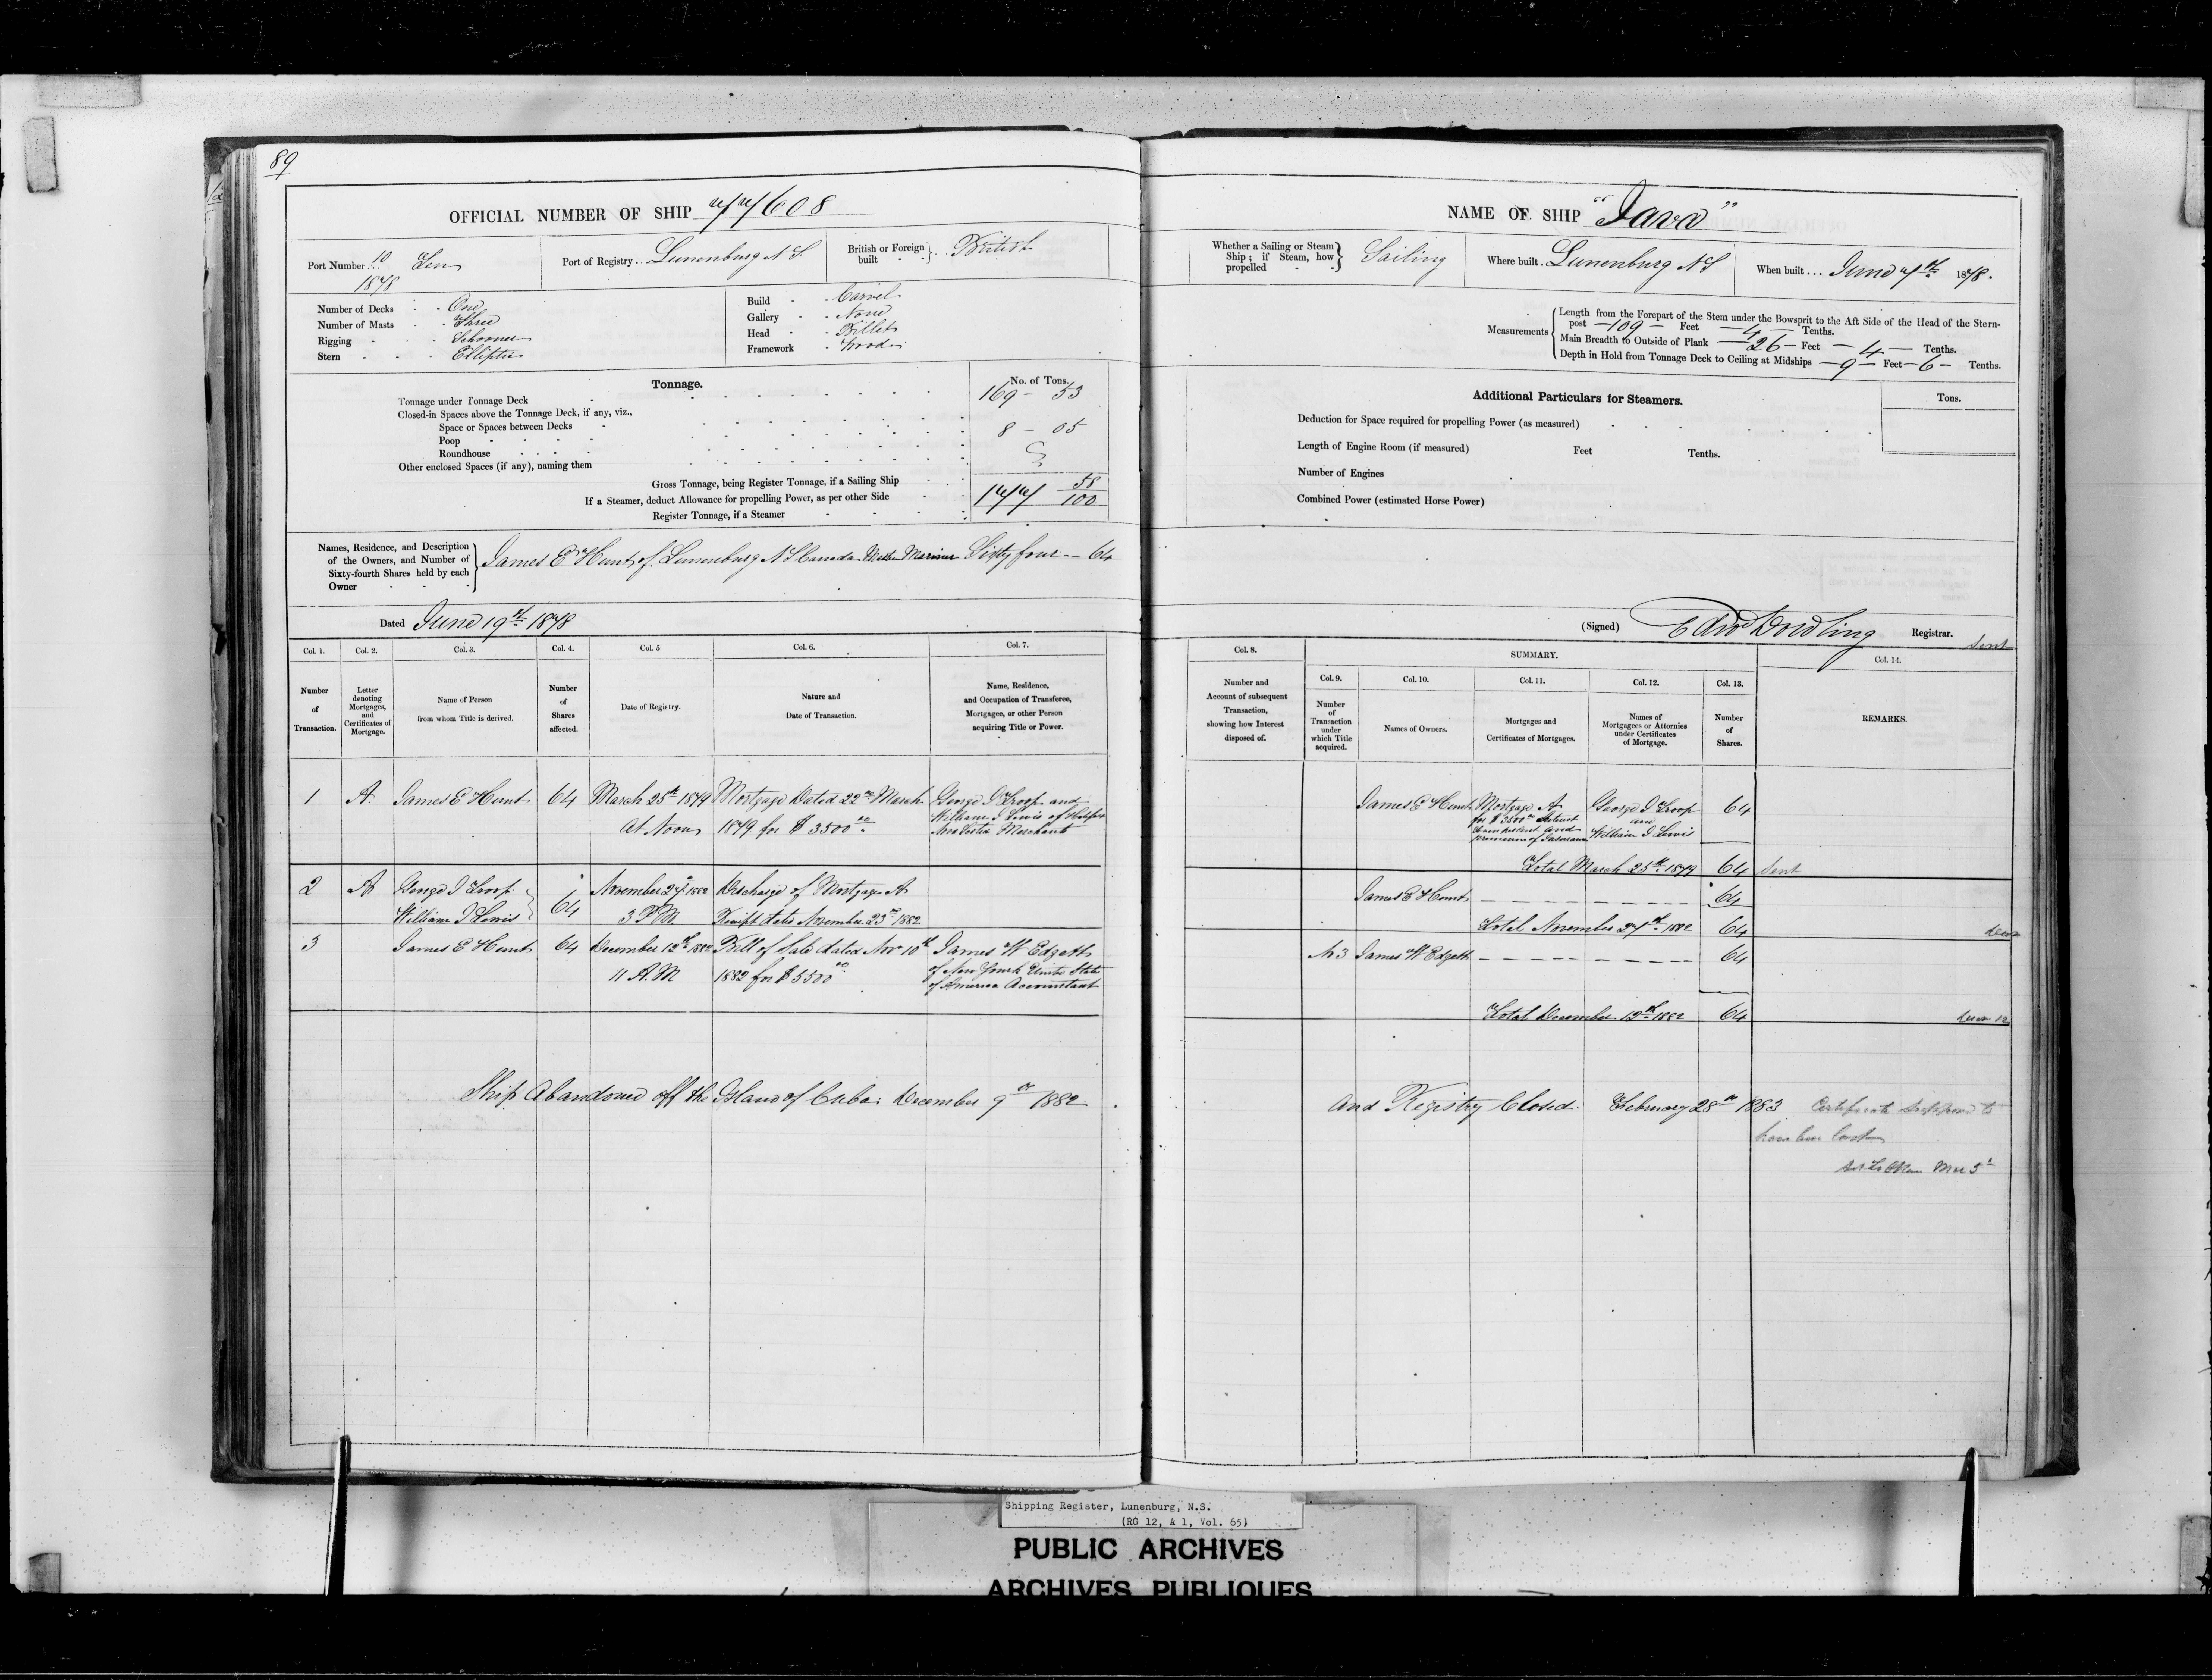 89
OFFICIAL NUMBER OF SHIP 77608
Port Number 10 Ten
1878
Port of Registry Lunenburg N S.
British or Foreign built British
Number of Decks One
Number of Masts Three
Rigging Schooner
Stern Elliptic
Build Carvel
Gallery None
Head Billet
Framework Wood
Tonnage.
No. of Tons.
Tonnage under Tonnage Deck 169 - 53
Closed-in Spaces above the Tonnage Deck, if any, viz.,
Space or Spaces between Decks
Poop 8 - 05
Roundhouse
Other enclosed Spaces (if any), naming them
Gross Tonnage, being Register Tonnage, if a Sailing Ship 177 58/100
If a Steamer, deduct Allowance for propelling Power, as per other Side
Register Tonnage, if a Steamer
Names, Residence, and Description
of the Owners, and Number of
Sixty-fourth Shares held by each
Owner
James E Hunt of Lunenburg N S Canada Master Mariner Sixty four -- 64
Dated June 19th 1878
Col. 1. Col. 2. Col. 3. Col. 4. Col. 5 Col. 6. Col. 7.
Number
of
Transaction.
Letter
denoting
Mortgages,
and
Certificates of
Mortgage.
Name of Person
from whom Title is derived.
Number
of
Shares
affected.
Date of Registry.
Nature and
Date of Transaction.
Name, Residence,
and Occupation of Transferee,
Mortgagee, or other Person
acquiring Title or Power.
1 A. James E Hunt 64 March 25th 1879 Mortgage Dated 22nd March George J Troop and
At Noon 1879 for $ 3500 00 William J Lewis of Halifax
Nova Scotia Merchants
2 A George J Troop November 27th 1882 Discharge of Mortgage A
William J Lewis 64 3 P M. Receipt dated November 23rd 1882
3 James E Hunt 64 December 12th 1882 Bill of Sale dated Nov 10th James W Edgett
11 A. M 1882 for $ 5500 00 of New Yourk United States
of America Accountant
Ship Abandoned off the Island of Cuba December 9th 1882.
NAME OF SHIP "Java"
Whether a Sailing or Steam
Ship; if Steam, how
propelled
Sailing
Where built Lunenburg N S
When built June 7th 1878.
Measurements
Length from the Forepart of the Stem under the Bowsprit to the Aft Side of the Head of the Stern-
post - 109 - Feet - 4 - Tenths.
Main Breadth to Outside of Plank - 26 - Feet - 4 - Tenths.
Depth in Hold from Tonnage Deck to Ceiling at Midships - 9 - Feet - 6 - Tenths.
Additional Particulars for Steamers.
Tons.
Deduction for Space required for propelling Power (as measured)
Length of Engine Room (if measured) Feet Tenths.
Number of Engines
Combined Power (estimated Horse Power)
(Signed) Edwd Dowling Registrar.
Sent
Col. 8.
SUMMARY.
Col. 14.
Number and
Account of subsequent
Transaction,
showing how Interest
disposed of.
Col. 9. Col. 10. Col. 11. Col. 12. Col. 13.
Number
of
Transaction
under
which Title
acquired.
Names of Owners.
Mortgages and
Certificates of Mortgages.
Names of
Mortgagees or Attornies
under Certificates
of Mortgage.
Number
of
Shares.
REMARKS.
James E Hunt Mortgage A George J Troop 64
for $ 3500 00 Interest and
William J Lewis
Total March 25th 1879 64 Sent
James E Hunt 64
Total November 27th 1882 64
No 3 James W Edgett 64
Total December 12th 1882 64
And Registry Closed. February 28th 1883 Certificate supposed to
have been lost
Mar 5th
Shipping Register, Lunenburg, N.S.
(RG 12, A 1, Vol. 65)
PUBLIC ARCHIVES
ARCHIVES PUBLIQUES